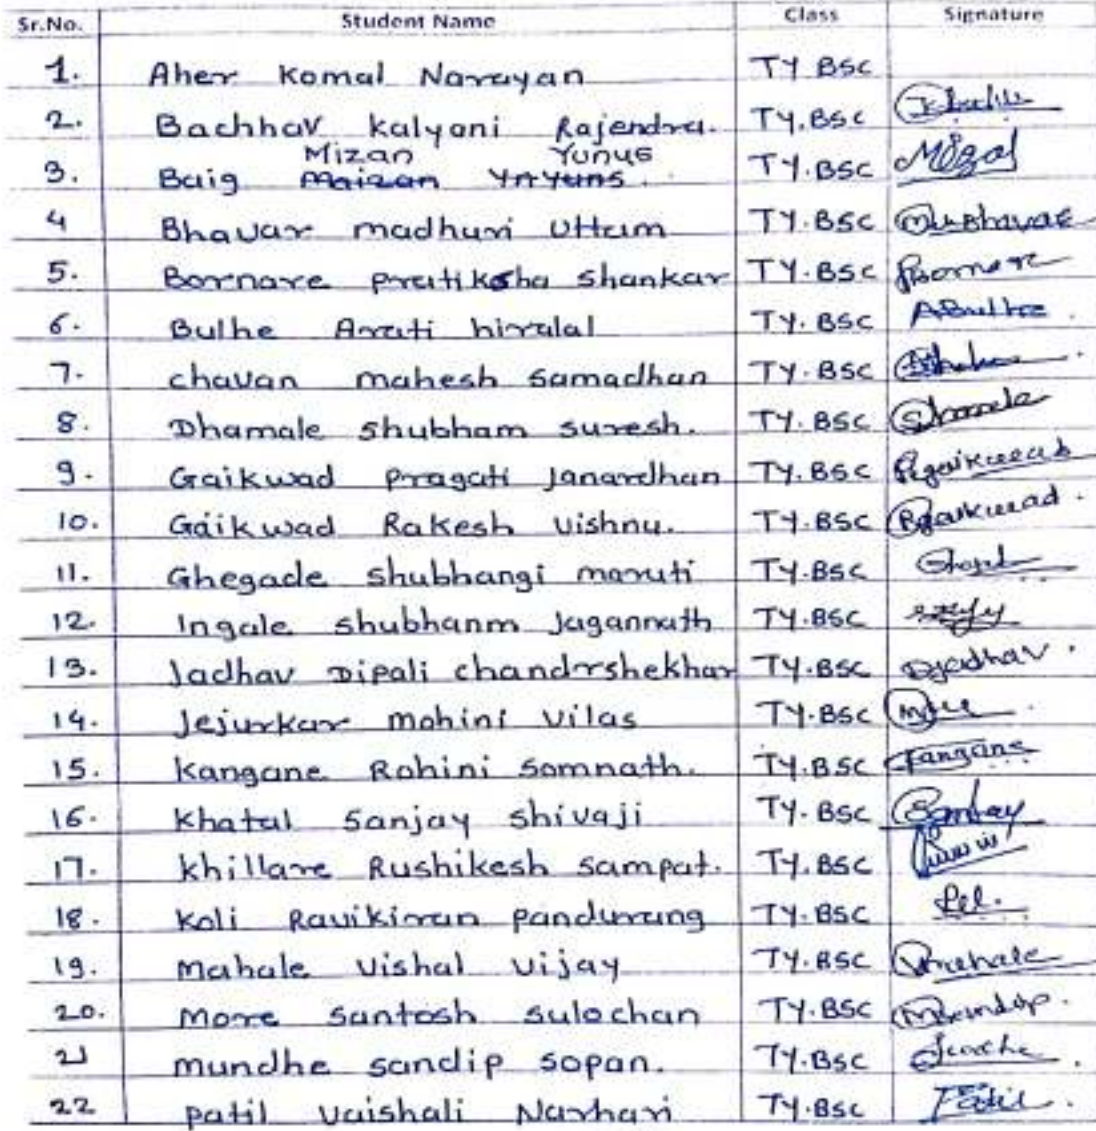 Sr.No. Student Name Class Signature
1. Aher Komal Narayan TY BSC
2. Bachhav Kalyani Rajendra. TY.BSC
Mizan Yunus
3. Baig TY.BSC Mizal
4 Bhavar madhuri Uttam TY.BSC MuBhavar
5. Bornare pratiksha shankar TY.BSC Bornare
6. Bulhe Arati hiralal TY. BSC ABulhe
7. chavan mahesh samadhan TY.BSC
8. Dhamale shubham suresh. TY.BSC
9. Gaikwad Pragati Janardhan TY.BSC Pgaikwad
10. Gaikwad Rakesh Vishnu. TY.BSC RGaikwad.
11. Ghegade shubhangi maruti TY.BSC
12. Ingale shubhanm Jagannath TY.BSC
13. Jadhav Dipali chandrshekhar TY.BSC DJadhav.
14. Jejurkar mohini vilas TY.BSC
15. Kangane Rohini somnath. TY.BSC
16. Khatal Sanjay shivaji TY.BSC
17. khillare Rushikesh sampat. TY.BSC
18. Koli Ravikiran pandurang TY.BSC
19. Mahale Vishal vijay TY.BSC Vmahale
20. More santosh sulochan TY.BSC
21 mundhe sandip sopan. TY.BSC
22 patil vaishali Narhari TY.BSC Patil.